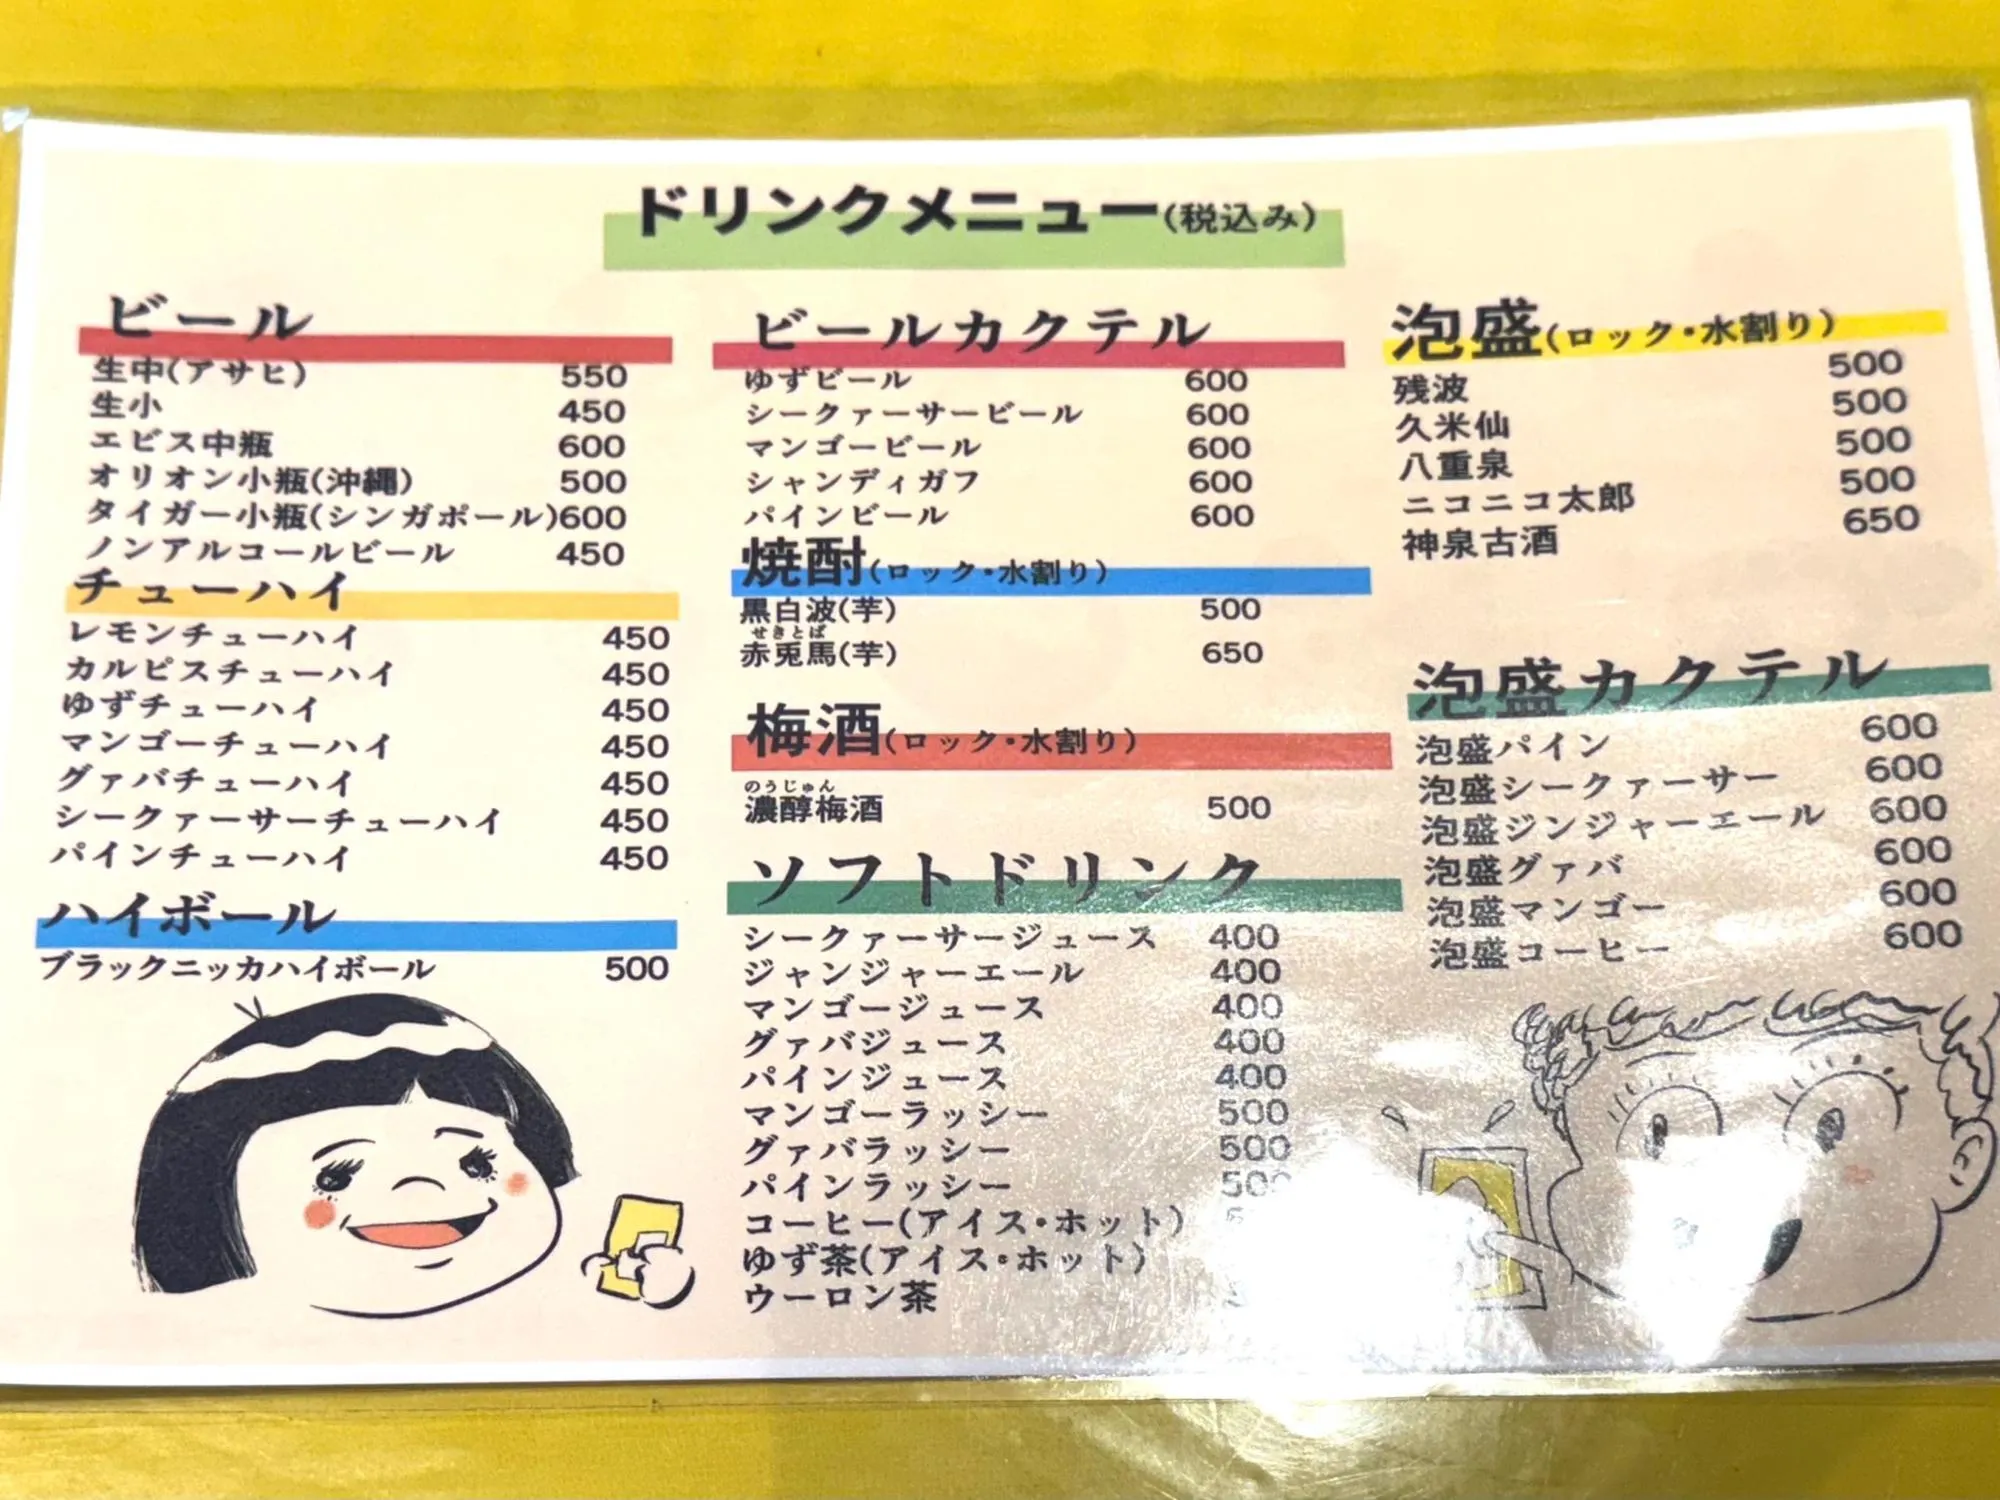 ドリンクメニュー(税込み)
ビール
生中(アサヒ) 550
生小 450
エビス中瓶 600
オリオン小瓶(沖縄) 500
タイガー小瓶(シンガポール)600
ノンアルコールビール 450
チューハイ
レモンチューハイ 450
カルピスチューハイ 450
ゆずチューハイ 450
マンゴーチューハイ 450
グァバチューハイ 450
シークァーサーチューハイ 450
パインチューハイ 450
ハイボール
ブラックニッカハイボール 500
ビールカクテル
ゆずビール 600
シークァーサービール 600
マンゴービール 600
シャンディガフ 600
パインビール 600
焼酎(ロック・水割り)
黒白波(芋) 500
せきとば
赤兎馬(芋) 650
梅酒(ロック・水割り)
のうじゅん
濃醇梅酒 500
ソフトドリンク
シークァーサージュース 400
ジャンジャーエール 400
マンゴージュース 400
グァバジュース 400
パインジュース 400
マンゴーラッシー 500
グァバラッシー 500
パインラッシー 500
コーヒー(アイス・ホット)
ゆず茶(アイス・ホット)
ウーロン茶
泡盛(ロック・水割り)
残波 500
久米仙 500
八重泉 500
ニコニコ太郎 500
神泉古酒 650
泡盛カクテル
泡盛パイン 600
泡盛シークァーサー 600
泡盛ジンジャーエール 600
泡盛グァバ 600
泡盛マンゴー 600
泡盛コーヒー 600